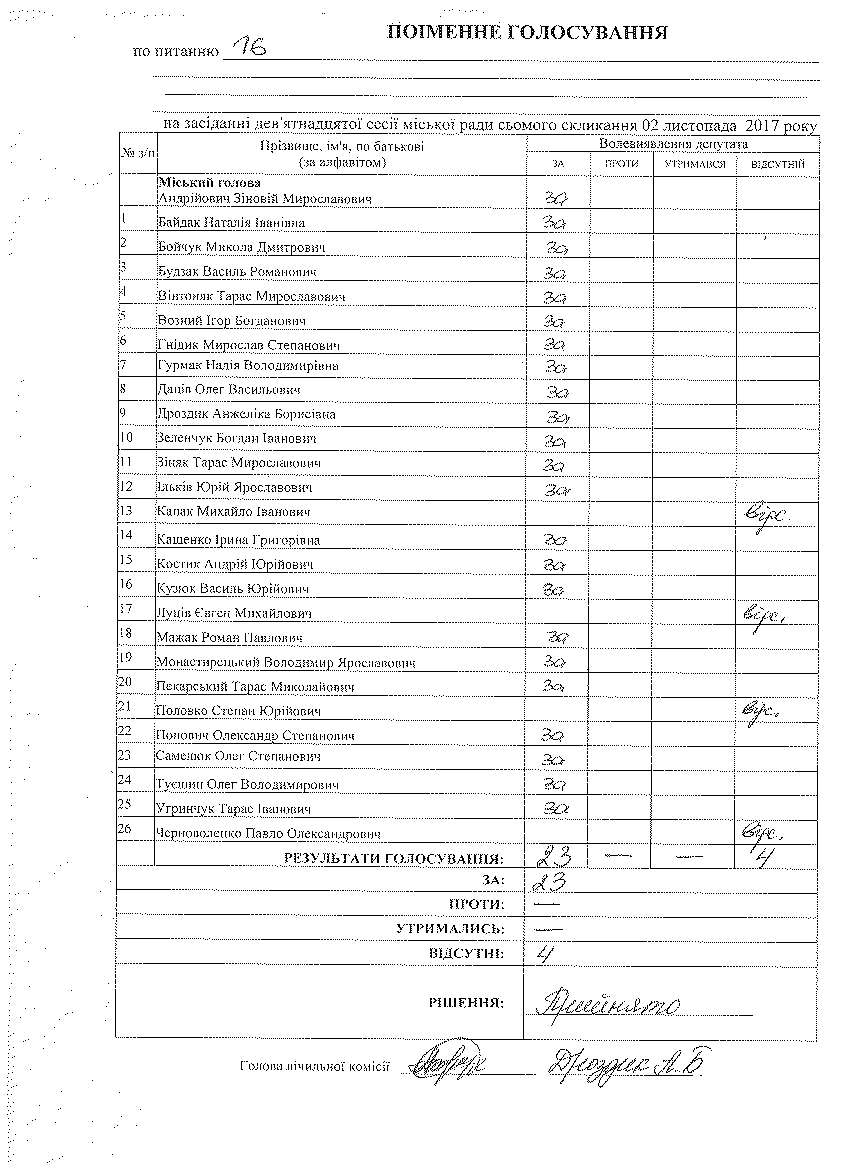 ПОІМЕННЕ ГОЛОСУВАННЯ
по питанню 16
на засіданні дев'ятнадцятої сесії міської ради сьомого скликання 02 листопада 2017 року
№ з/п Прізвище, ім'я, по батькові (за алфавітом) Волевиявлення депутата
ЗА ПРОТИ УТРИМАВСЯ ВІДСУТНІЙ
Міський голова
Андрійович Зіновій Мирославович За
1 Байдак Наталія Іванівна За
2 Бойчук Микола Дмитрович За
3 Будзак Василь Романович За
4 Вінтоняк Тарас Мирославович За
5 Возний Ігор Богданович За
6 Гнідик Мирослав Степанович За
7 Гурмак Надія Володимирівна За
8 Даців Олег Васильович За
9 Дроздик Анжеліка Борисівна За
10 Зеленчук Богдан Іванович За
11 Зіняк Тарас Мирославович За
12 Ільків Юрій Ярославович За
13 Капак Михайло Іванович відс.
14 Кащенко Ірина Григорівна За
15 Костик Андрій Юрійович За
16 Кузюк Василь Юрійович За
17 Луців Євген Михайлович відс.
18 Мажак Роман Павлович За
19 Монастирецький Володимир Ярославович За
20 Пекарський Тарас Миколайович За
21 Половко Степан Юрійович відс.
22 Попович Олександр Степанович За
23 Саменюк Олег Степанович За
24 Олег Володимирович За
25 Угринчук Тарас Іванович За
26 Черноволенко Павло Олександрович відс.
РЕЗУЛЬТАТИ ГОЛОСУВАННЯ: 23 — — 4
ЗА: 23
ПРОТИ: —
УТРИМАЛИСЬ: —
ВІДСУТНІ: 4
РІШЕННЯ: Прийнято
Голова лічильної комісії Дроздик А.Б